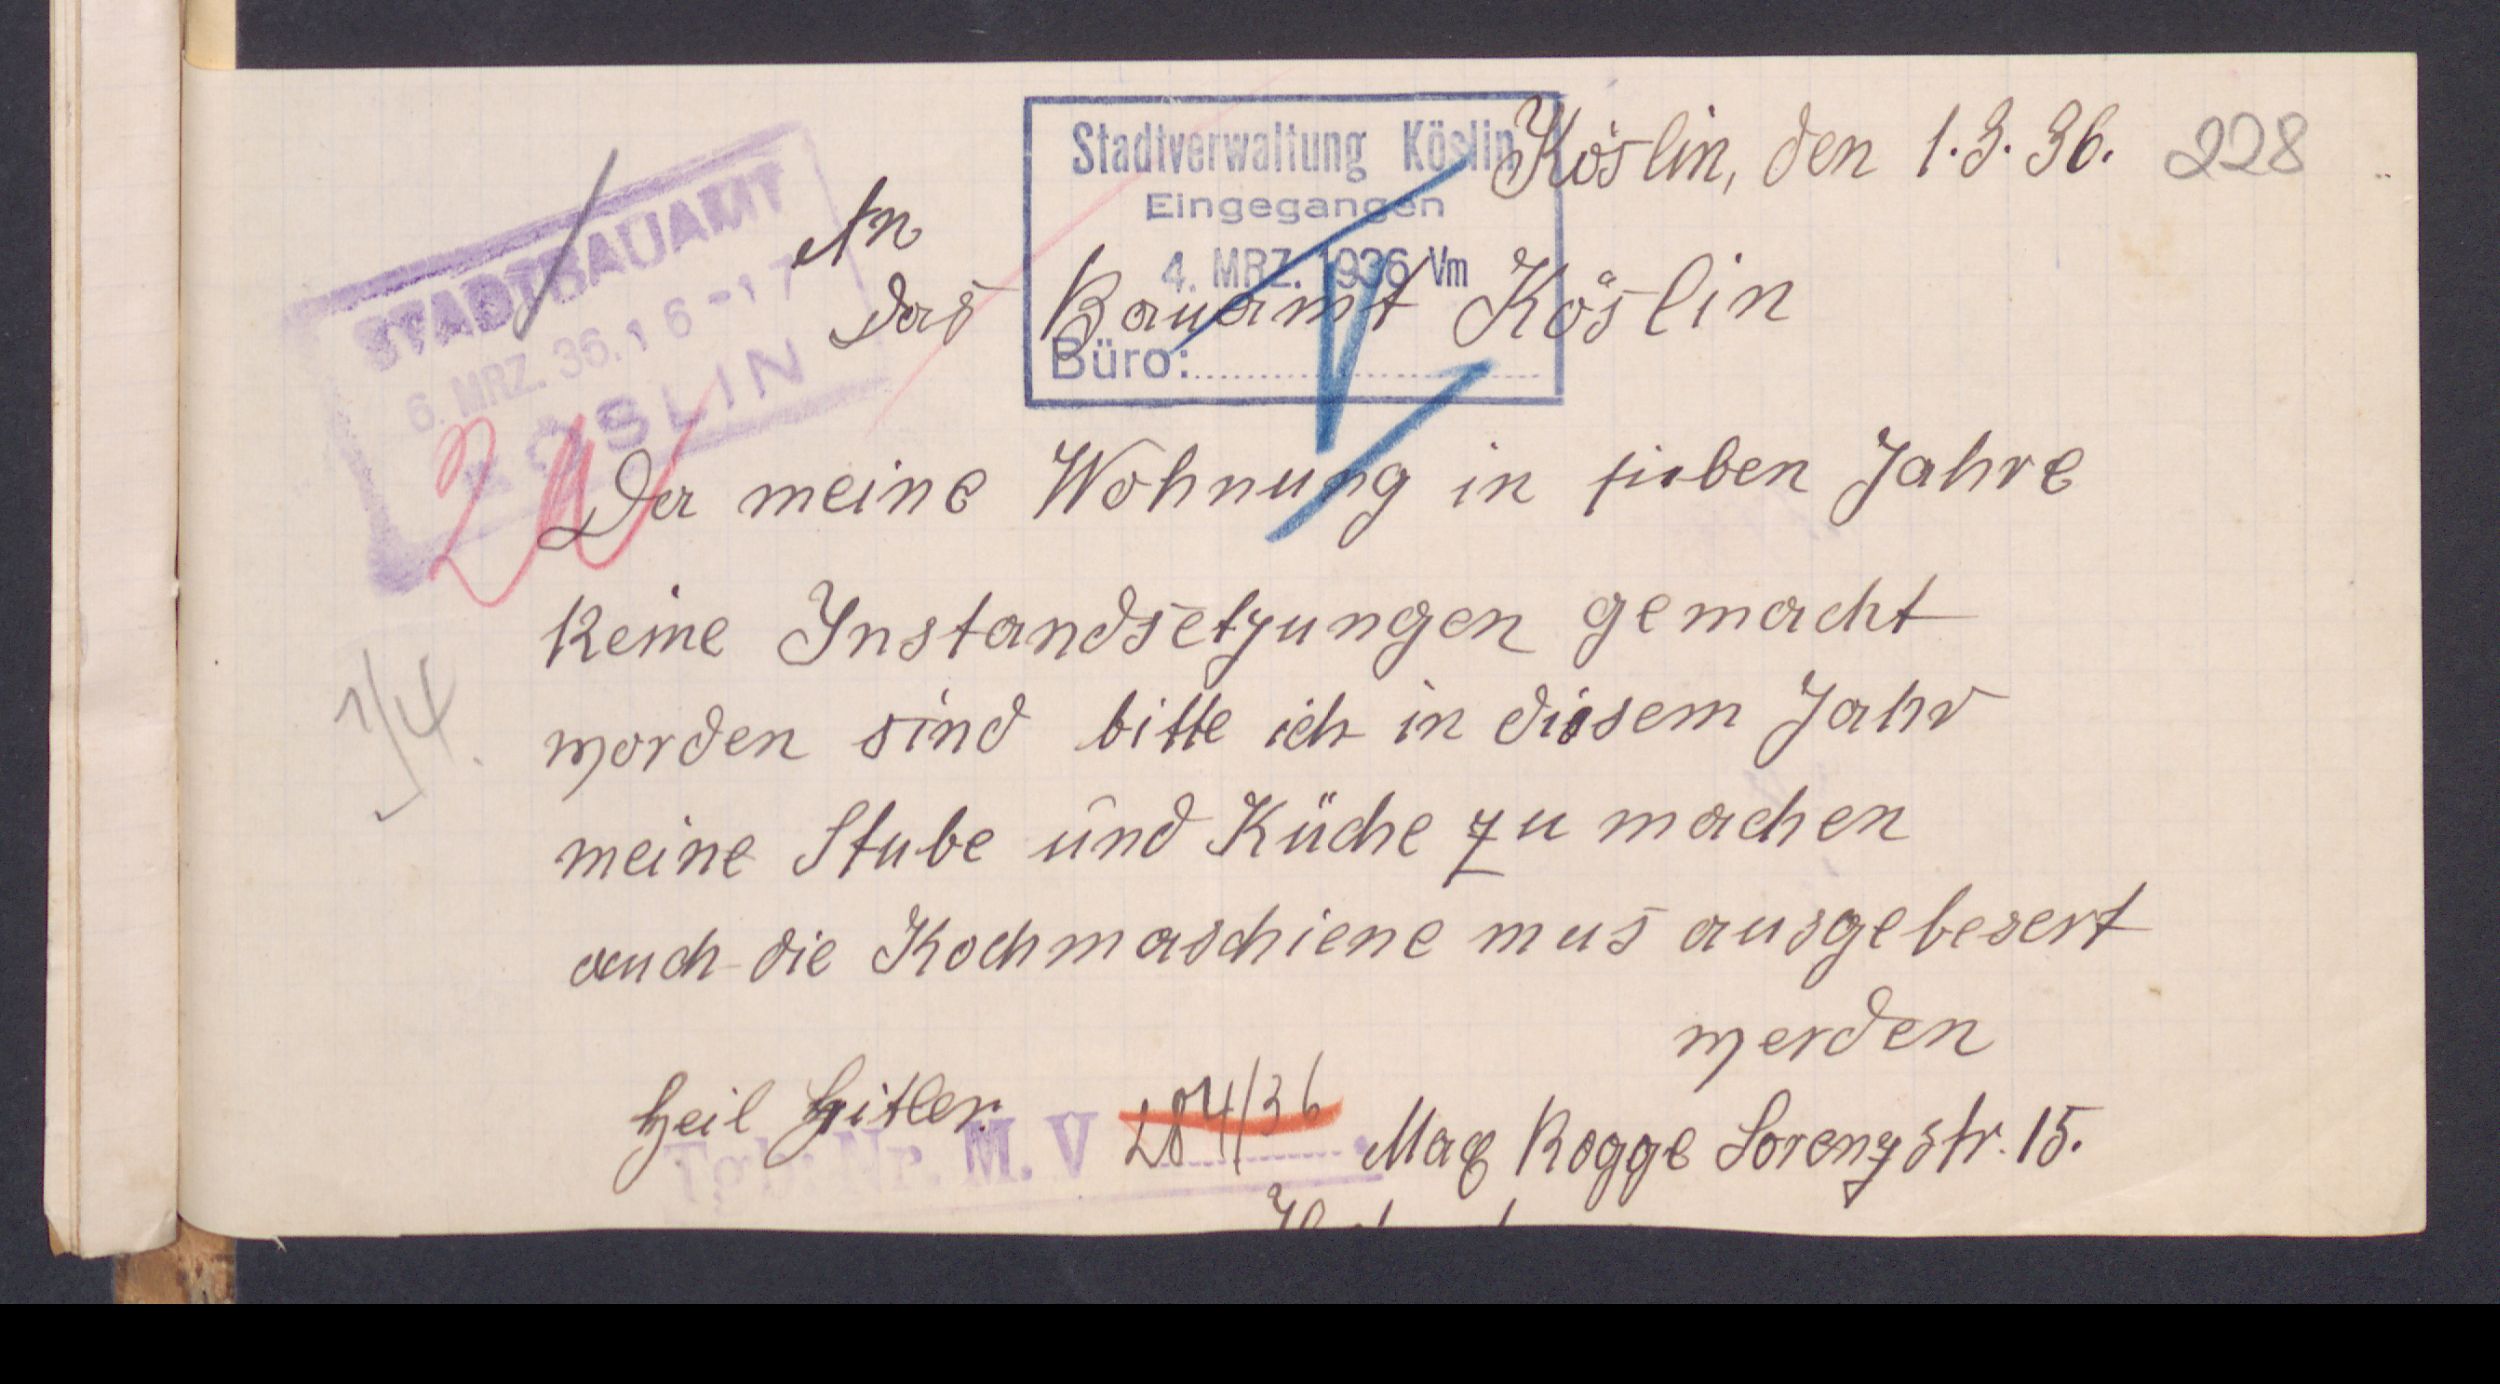 Köslin, den 1.3.36. 228
Stadtverwaltung Köslin
Eingegangen
4. MRZ. 1936 Vm
Büro:
STADTBAUAMT
6. MRZ. 36. 16-17
KÖSLIN
An
das Bauamt Köslin
Da meine Wohnung in sieben Jahre
keine Instandsetzungen gemacht
worden sind bitte ich in diesem Jahr
meine Stube und Küche zu machen
auch die Kochmaschiene mus ausgebesert
werden
Heil Hitler.
Tgb. Nr. M. V 284/36
Max Rogge Lorenzstr. 15.